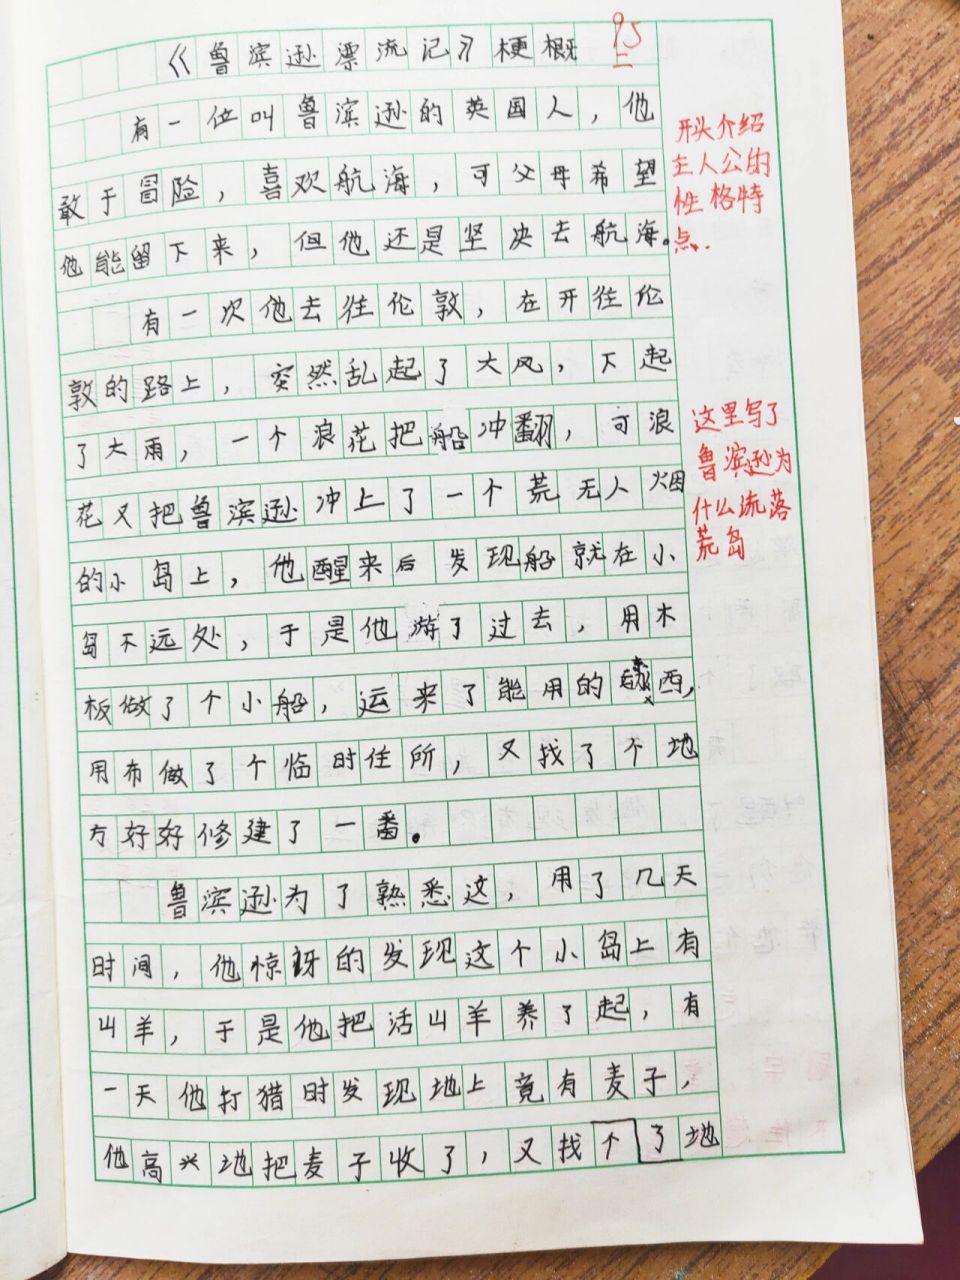 《鲁滨逊漂流记》梗概
95
有一位叫鲁滨逊的英国人，他
敢于冒险，喜欢航海，可父母希望
他能留下来，但他还是坚决去航海。
有一次他去往伦敦，在开往伦
敦的路上，突然乱起了大风，下起
了大雨，一个浪花把船冲翻，可浪
花又把鲁滨逊冲上了一个荒无人烟
的小岛上，他醒来后发现船就在小
岛不远处，于是他游了过去，用木
板做了个小船，运来了能用的东西，
用布做了个临时住所，又找了个地
方好好修建了一番。
鲁滨逊为了熟悉这，用了几天
时间，他惊讶的发现这个小岛上有
山羊，于是他把活山羊养了起，有
一天他打猎时发现地上竟有麦子，
他高兴地把麦子收了，又找个了地
开头介绍
主人公的
性格特
点.
这里写了
鲁滨逊为
什么流落
荒岛